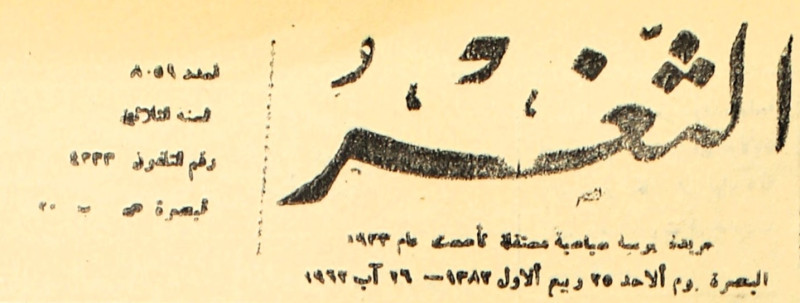 الثغر
جريدة يومية سياسية مستقلة تأسست عام ١٩٣٣
البصرة يوم الاحد ٢٥ ربيع الاول ١٣٨٢ — ٢٦ آب ١٩٦٢
العدد ٨٠٥٩
السنة الثلاثون
رقم التلفون ٤٢٣٣
البصرة ص ب ٢٠